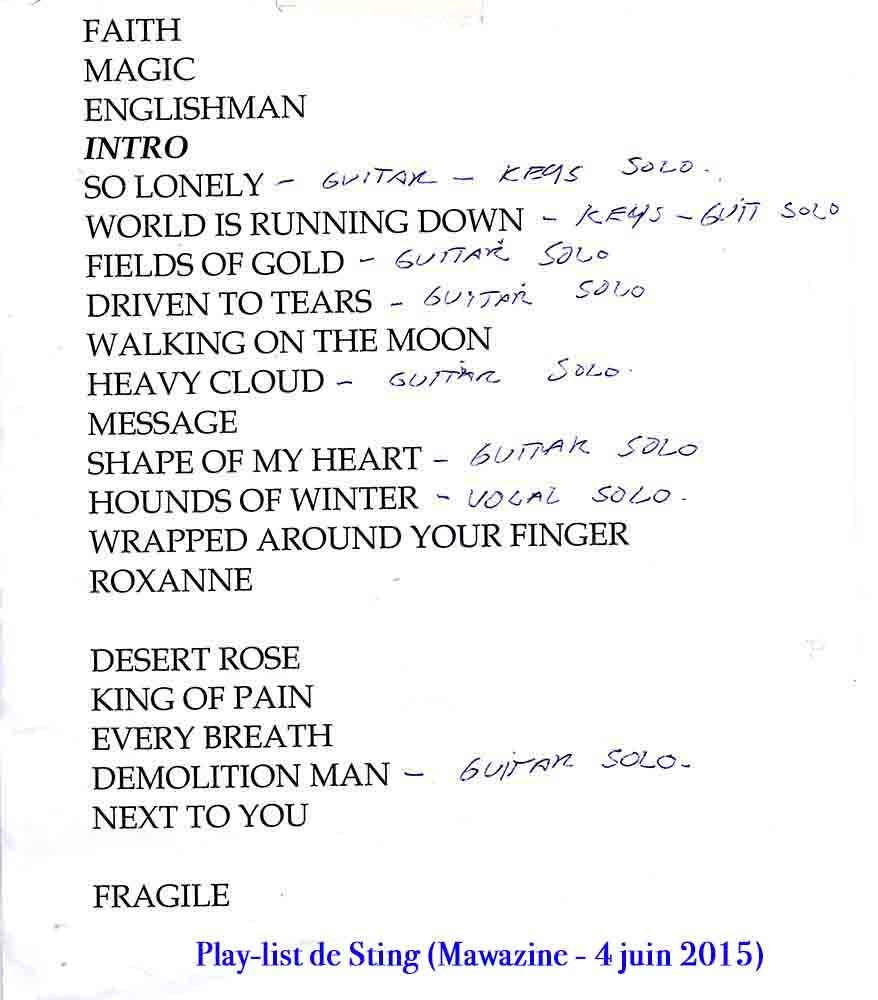 FAITH
MAGIC
ENGLISHMAN
INTRO
SO LONELY - GUITAR - KEYS SOLO.
WORLD IS RUNNING DOWN - KEYS - GUIT SOLO
FIELDS OF GOLD - GUITAR SOLO
DRIVEN TO TEARS - GUITAR SOLO
WALKING ON THE MOON
HEAVY CLOUD - GUITAR SOLO.
MESSAGE
SHAPE OF MY HEART - GUITAR SOLO
HOUNDS OF WINTER - VOCAL SOLO.
WRAPPED AROUND YOUR FINGER
ROXANNE
DESERT ROSE
KING OF PAIN
EVERY BREATH
DEMOLITION MAN - GUITAR SOLO.
NEXT TO YOU
FRAGILE
Play-list de Sting (Mawazine - 4 juin 2015)